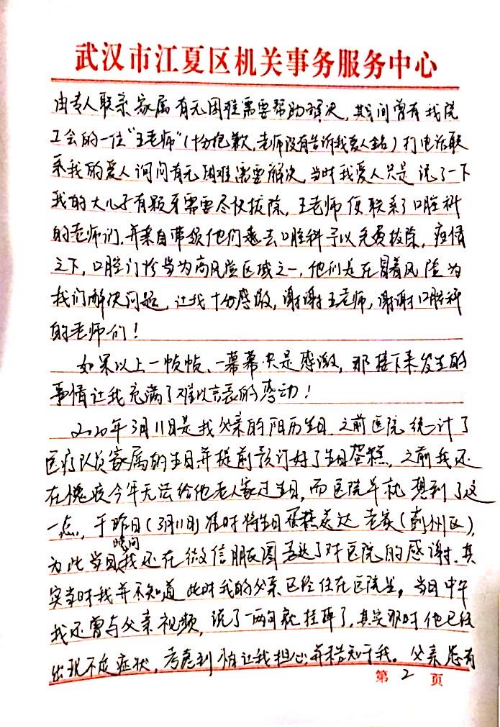 武汉市江夏区机关事务服务中心
由专人联系家属有无困难需要帮助解决,其间曾有我院
工会的一位“王老师”(十分抱歉,老师没有告诉我爱人全名)打电话联
系我的爱人询问有无困难需要解决,当时我爱人只是说了一下
我的大儿子有颗牙需要尽快拔除,王老师便联系了口腔科
的老师们,并亲自带领他们去口腔科予以免费拔除,疫情
之下,口腔门诊当为高风险区域之一,他们是在冒着风险为
我们解决问题,让我十分感激,谢谢王老师,谢谢口腔科
的老师们!
如果以上一帧帧、一幕幕只是感激,那接下来发生的
事情让我充满了难以言表的感动!
2020年3月11日是我父亲的阳历生日,之前医院统计了
医疗队员家属的生日并提前预订好了生日蛋糕,之前我还
在愧疚今年无法给他老人家过生日,而医院早就想到了这
一点,于昨日(3月11日)准时将生日蛋糕送达老家(荆州区),
为此当日晚间我还在微信朋友圈表达了对医院的感谢,其
实当时我并不知道此时我的父亲已经住在医院里,当日中午
我还曾与父亲视频,说了一两句就挂断了,其实那时他已经
出现不适症状,考虑到怕让我担心并未告知于我。父亲患有
第2页